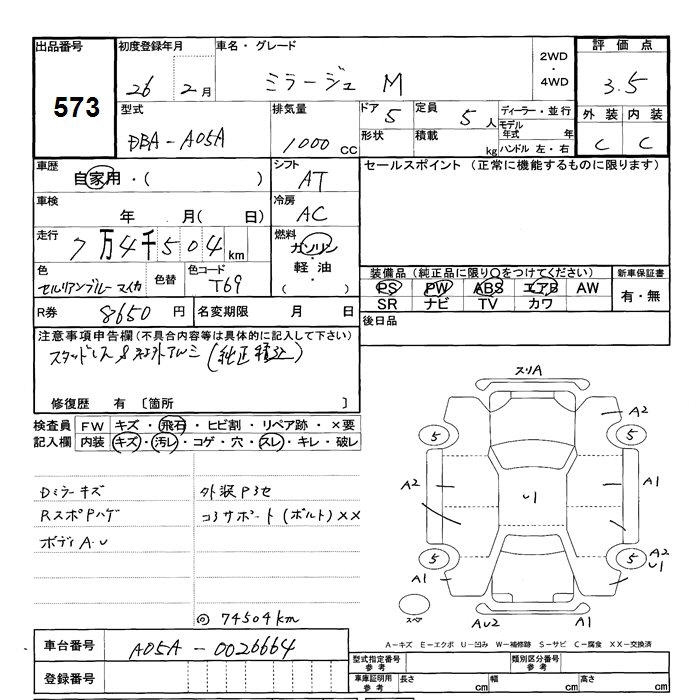 出品番号 初度登録年月 車名・グレード 2WD・4WD 評価点
573 26 2月 ミラージュ M 3.5
型式 排気量 ドア 5 定員 5人 ディーラー・並行 外装 内装
DBA-A05A 1000cc 形状 積載 kg モデル年式 年 ハンドル 左・右 C C
車歴 シフト セールスポイント(正常に機能するものに限ります)
自家用・( ) AT
車検 冷房
年 月( 日) AC
走行 燃料
7万4千504km ガソリン・軽油・( )
色 色替 色コード 装備品(純正品に限り○をつけてください) 新車保証書
セルリアンブルーマイカ T69 PS PW ABS エアB AW 有・無
SR ナビ TV カワ
R券 8650円 名変期限 月 日 後日品
注意事項申告欄(不具合内容等は具体的に記入して下さい)
スタッドレス&社外アルミ(純正積込)
修復歴 有 〔箇所 〕
検査員記入欄 FW キズ・飛石・ヒビ割・リペア跡・×要
内装 キズ・汚レ・コゲ・穴・スレ・キレ・破レ
Dミラーキズ 外装P3セ
RスポPハゲ コアサポート(ボルト)XX
ボディA.U
@ 74504km
スリA
A2
5 5
A2 U1 A1
5 5 A2 U1
A1
スペア AU2 A1
A-キズ E-エクボ U-凹み W-補修跡 S-サビ C-腐食 XX-交換済
車台番号 A05A-0026664
登録番号
型式指定番号参考 類別区分番号参考
車庫証明用参考 長さ cm 幅 cm 高さ cm